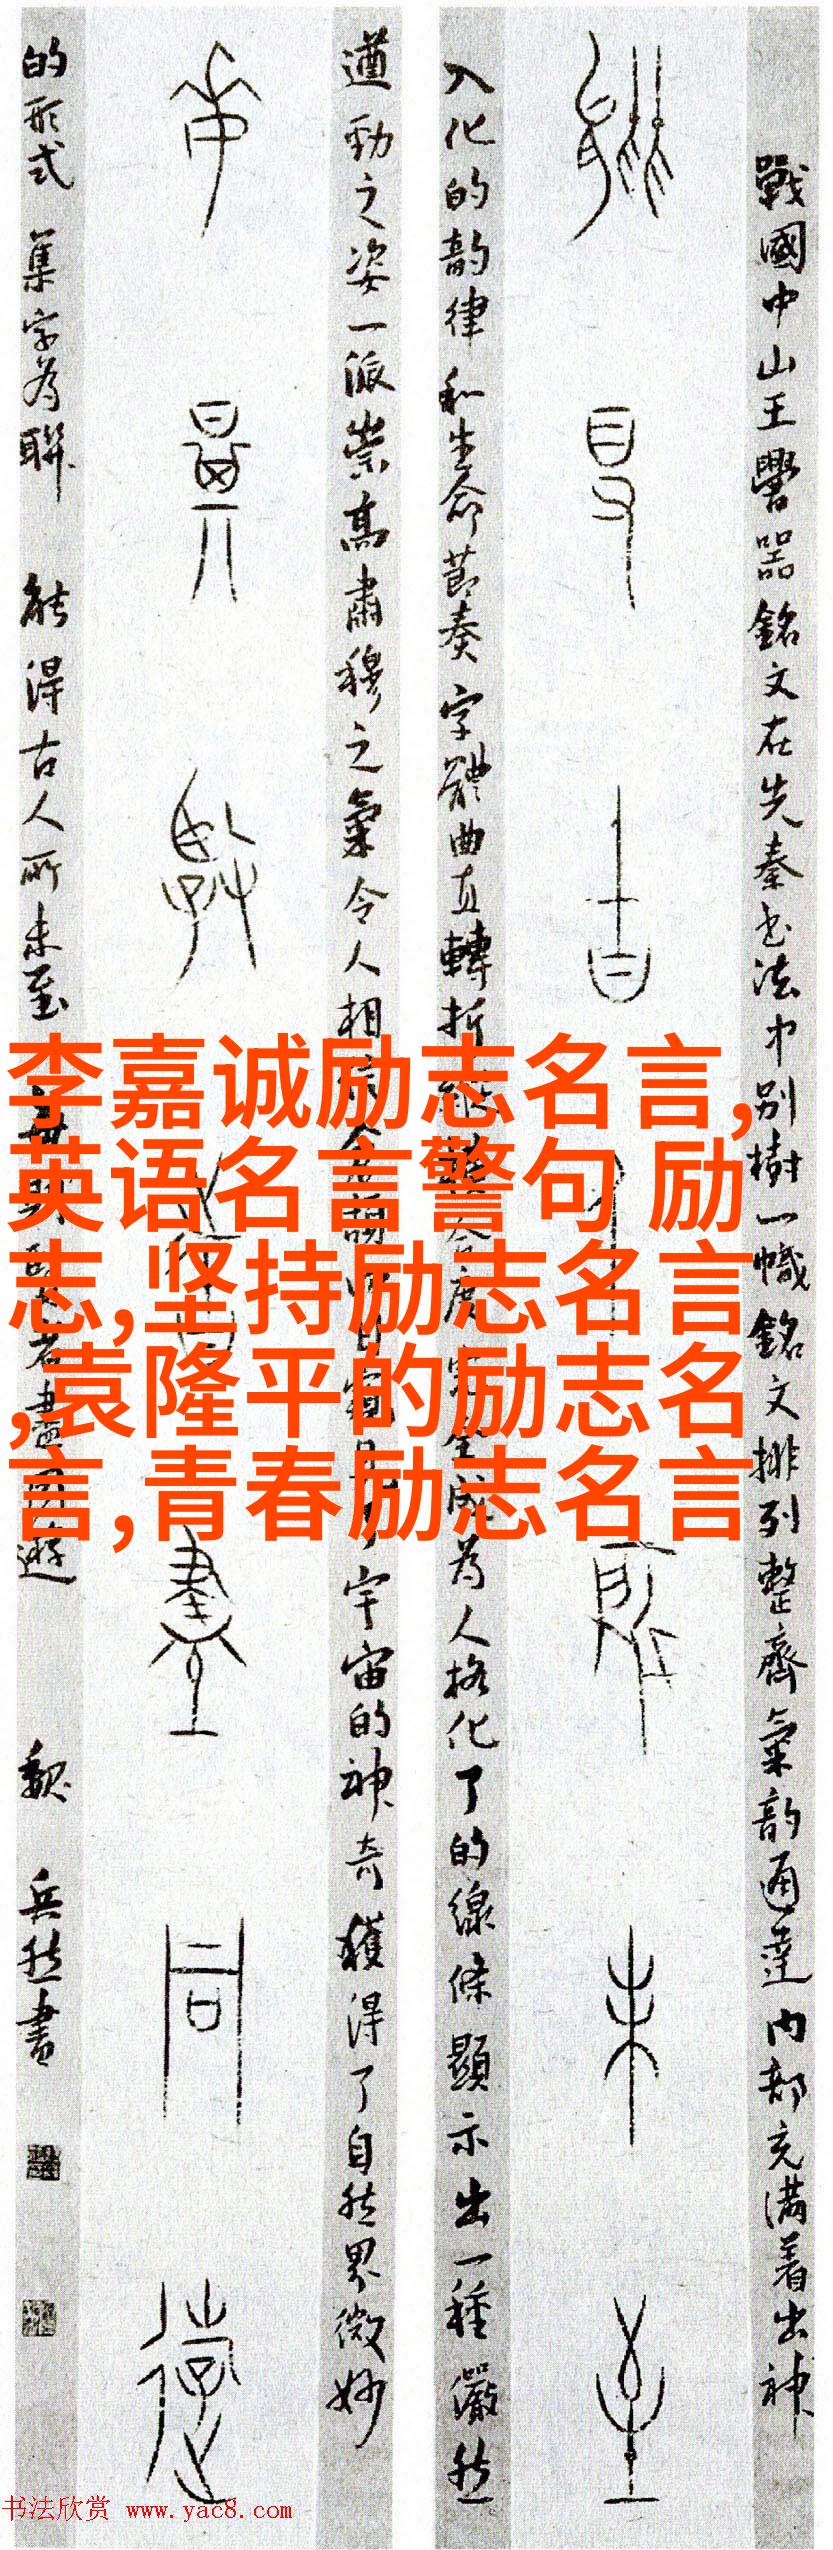 戰國中山王嚳器銘文在先秦书法中别樹一幟銘文排列整齊氣韵通達内部充滿着出神
能得古人所未至
入化的韵律和生命節奏字體曲直轉折合度完全成为人格化了的線條顯示出一種儼然
遒勁之姿一派崇高肅穆之氣令人相宇宙的神奇獲得了自然界微妙
賢者盡同遊
的形式 集字为聯 能得古人所未至 者盡同遊 魏 兵然書
李嘉诚励志名言,
英语名言警句 励
志,坚持励志名言
,袁隆平的励志名
言,青春励志名言
书法欣赏 www.yac8.com